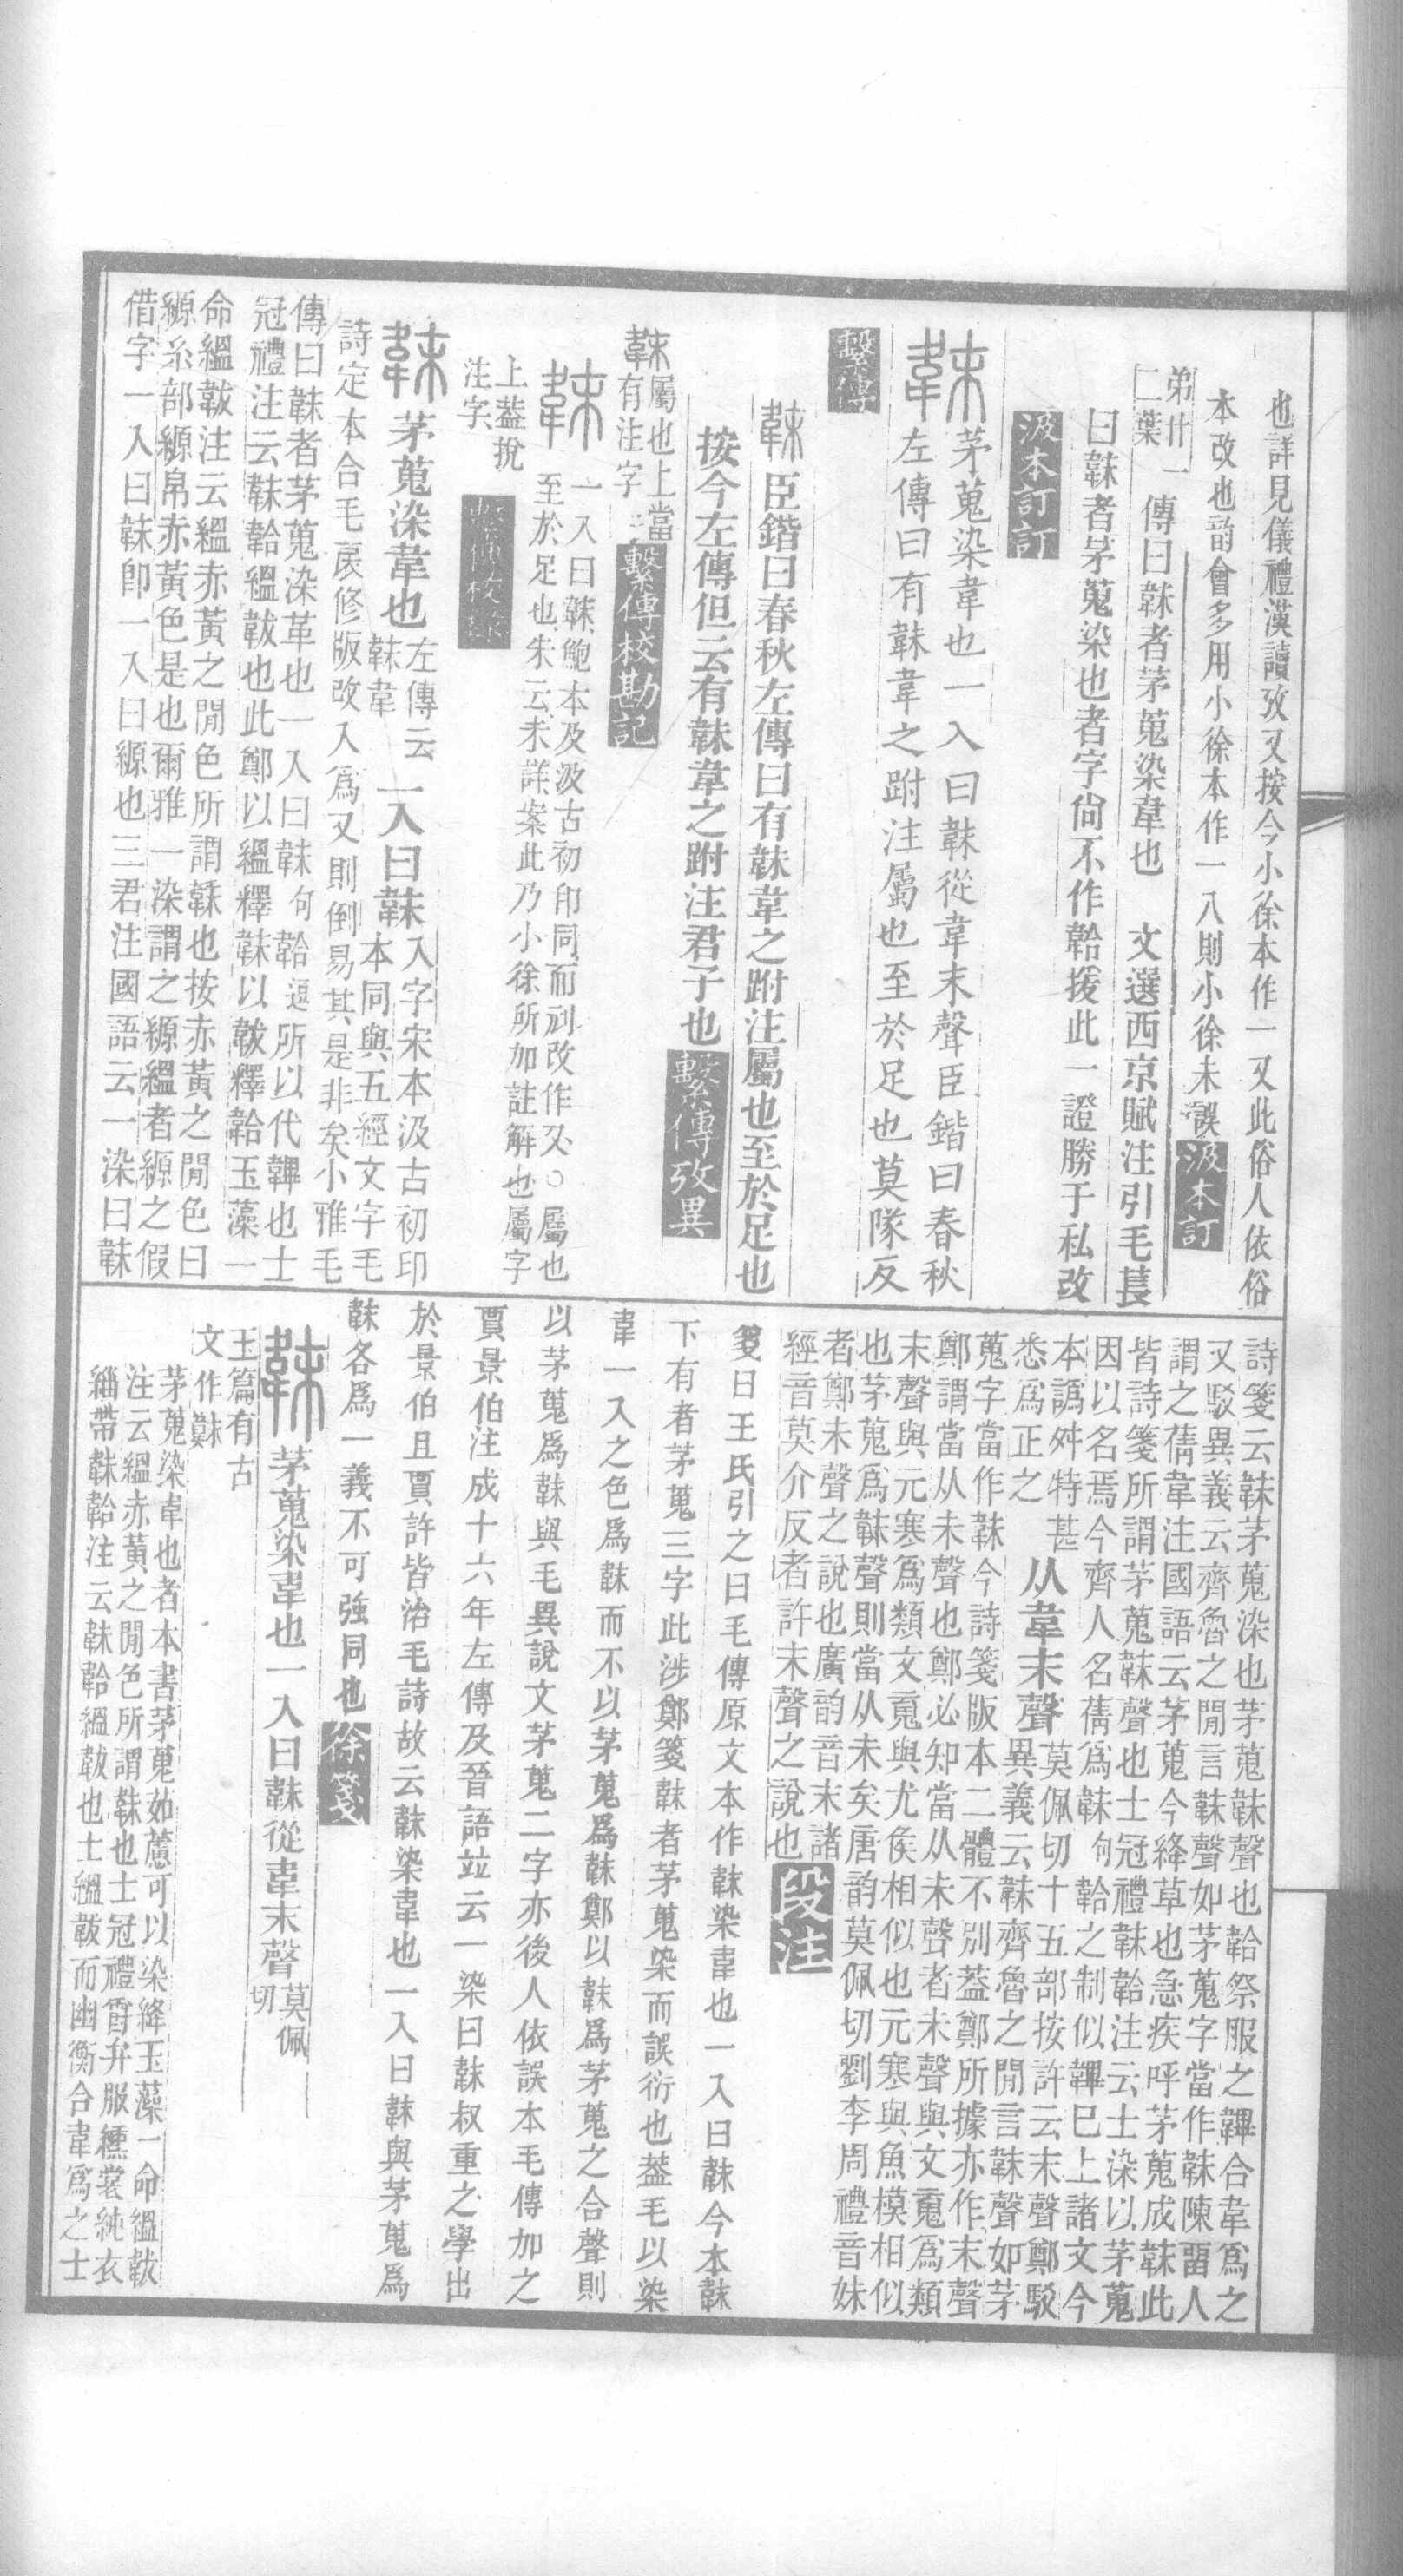 也詳見儀禮漢讀攷又按今小徐本作一又此俗人依俗
本改也韵會多用小徐本作一入則小徐未誤 汲本訂
弟廿一
二葉
傳曰韎者茅蒐染韋也 文選西京賦注引毛萇
曰韎者茅蒐染也者字尙不作韐援此一證勝于私改
汲本訂
韎茅蒐染韋也一入曰韎從韋末聲臣鍇曰春秋
左傳曰有韎韋之跗注屬也至於足也莫隊反
繫傳
韎臣鍇曰春秋左傳曰有韎韋之跗注屬也至於足也
按今左傳但云有韎韋之跗注君子也 繫傳攷異
韎屬也上當
有注字 繫傳校勘記
韎一入曰韎鮑本及汲古初印同而刓改作又○屬也
至於足也朱云未詳案此乃小徐所加註解也屬字
上葢挩
注字 繫傳校錄
韎茅蒐染韋也左傳云
韎韋一入曰韎入字宋本汲古初印
本同與五經文字毛
詩定本合毛扆修版改入爲又則倒易其是非矣小雅毛
傳曰韎者茅蒐染革也一入曰韎句韐逗所以代韠也士
冠禮注云韎韐縕韍也此鄭以縕釋韎以韍釋韐玉藻一
命縕韍注云縕赤黃之閒色所謂韎也按赤黃之閒色曰
縓糸部縓帛赤黃色是也爾雅一染謂之縓縕者縓之假
借字一入曰韎卽一入曰縓也三君注國語云一染曰韎
詩箋云韎茅蒐染也茅蒐韎聲也韐祭服之韠合韋爲之
又駁異義云齊魯之閒言韎聲如茅蒐字當作韎陳畱人
謂之蒨韋注國語云茅蒐今絳草也急疾呼茅蒐成韎此
皆詩箋所謂茅蒐韎聲也士冠禮韎韐注云士染以茅蒐
因以名焉今齊人名蒨爲韎句韐之制似韠已上諸文今
本譌舛特甚
悉爲正之从韋末聲莫佩切十五部按許云末聲鄭駁
異義云韎齊魯之閒言韎聲如茅
蒐字當作韎今詩箋版本二體不別葢鄭所據亦作末聲
鄭謂當从未聲也鄭必知當从未聲者未聲與文䰟爲類
末聲與元寒爲類文䰟與尤侯相似也元寒與魚模相似
也茅蒐爲韎聲則當从未矣唐韵莫佩切劉李周禮音妹
者鄭未聲之說也廣韵音末諸
經音莫介反者許末聲之說也 段注
箋曰王氏引之曰毛傳原文本作韎染韋也一入曰韎今本韎
下有者茅蒐三字此涉鄭箋韎者茅蒐染而誤衍也葢毛以染
韋一入之色爲韎而不以茅蒐爲韎鄭以韎爲茅蒐之合聲則
以茅蒐爲韎與毛異說文茅蒐二字亦後人依誤本毛傳加之
賈景伯注成十六年左傳及晉語竝云一染曰韎叔重之學出
於景伯且賈許皆治毛詩故云韎染韋也一入曰韎與茅蒐爲
韎各爲一義不可強同也 徐箋
韎茅蒐染韋也一入曰韎從韋末聲莫佩
切
玉篇有古
文作𩏁
茅蒐染韋也者本書茅蒐如藘可以染絳玉藻一命縕韍
注云縕赤黃之閒色所謂韎也士冠禮爵弁服纁裳純衣
緇帶韎韐注云韎韐縕韍也士縕韍而幽衡合韋爲之士